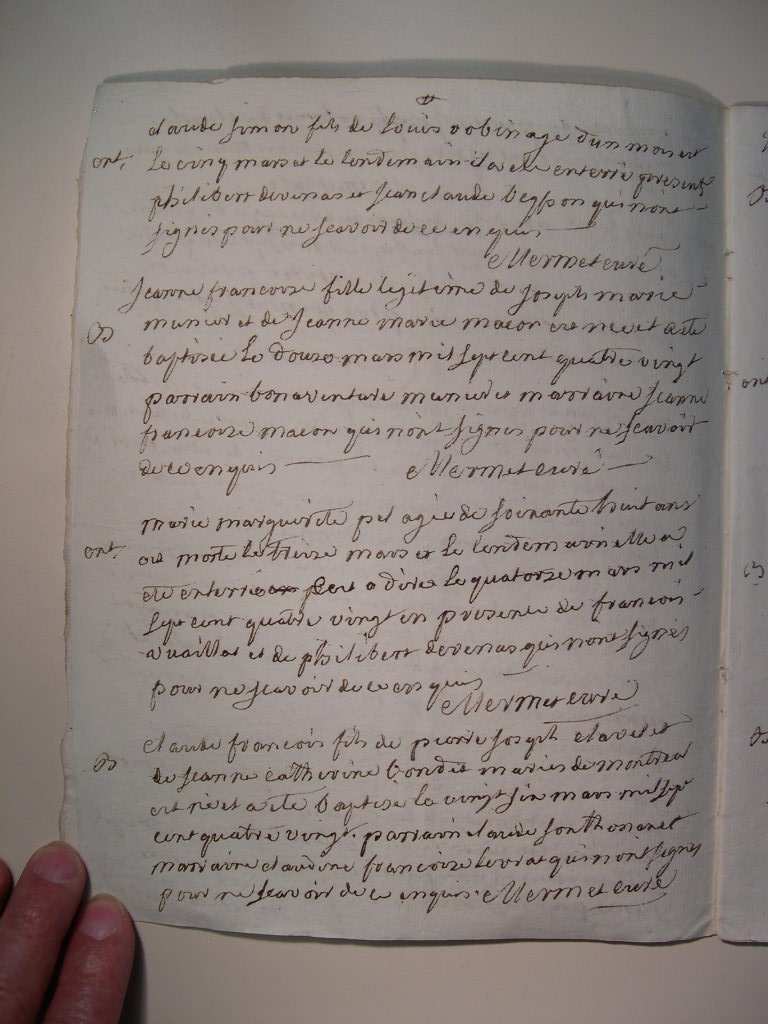 claude simon fils de louis robin agé d'un mois est
ent. le cinq mars et le lendemain il a été enterré present
philibert devenas et jean claude qui n'ont
signés pour ne scavoir de ce enquis
Mermet curé
Jeanne francoise fille legitime de joseph marie
B munier et de jeanne marie macon est née et a eté
baptisée le douze mars mil sept cent quatre vingt
parrain bonaventure munier et marraine jeanne
francoise macon qui n'ont signés pour ne scavoir
de ce enquis Mermet curé
marie marguerite agée de soixante huit ans
ent. est morte le treize mars et le lendemain elle a
eté enterrée c'est a dire le quatorze mars mil
sept cent quatre vingt en presence de francois
vaillat et de philibert devenas qui n'ont signés
pour ne scavoir de ce enquis
Mermet curé
claude francois fils de pierre joseph clavel et
B de jeanne catherine bondet mariés de montreal
est né et a eté baptisé le vingt six mars mil sept
cent quatre vingt. parrain claude sonthonanet
marraine claudine francoise levrat qui n'ont signés
pour ne scavoir de ce enquis. Mermet curé